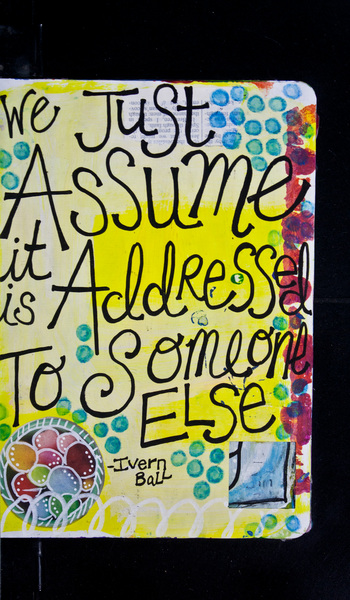 We Just
Assume
it Addressed
is
To Someone
ELSE
-Ivern
Ball